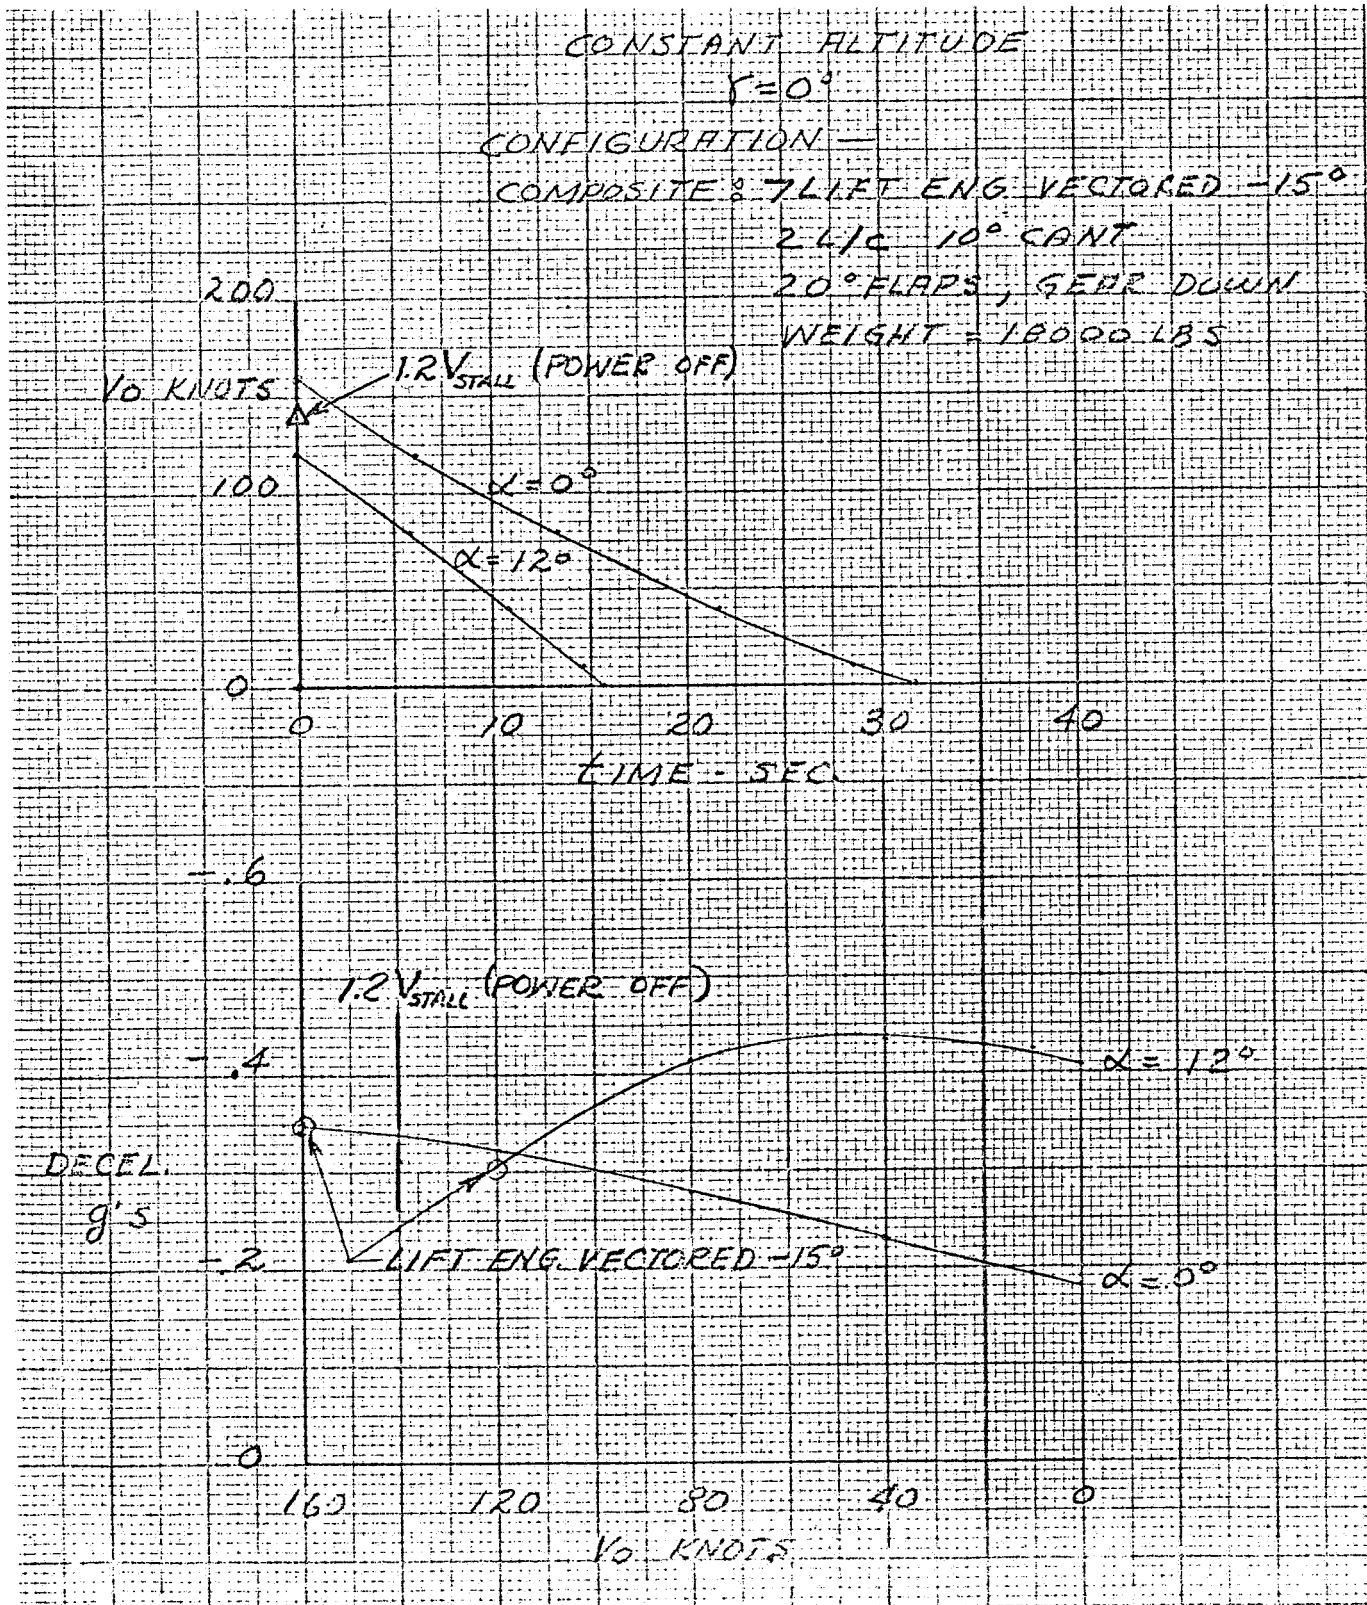 CONSTANT ALTITUDE
γ=0°
CONFIGURATION —
COMPOSITE: 7 LIFT ENG VECTORED -15°
2 L/C 10° CANT
20° FLAPS, GEAR DOWN
WEIGHT = 18000 LBS
200
1.2 VSTALL (POWER OFF)
VO KNOTS
100
α=0°
α=12°
0
0 10 20 30 40
TIME - SEC.
-.6
1.2 VSTALL (POWER OFF)
-.4
α=12°
DECEL.
g's
-.2
LIFT ENG. VECTORED -15°
α=0°
0
160 120 80 40 0
VO KNOTS